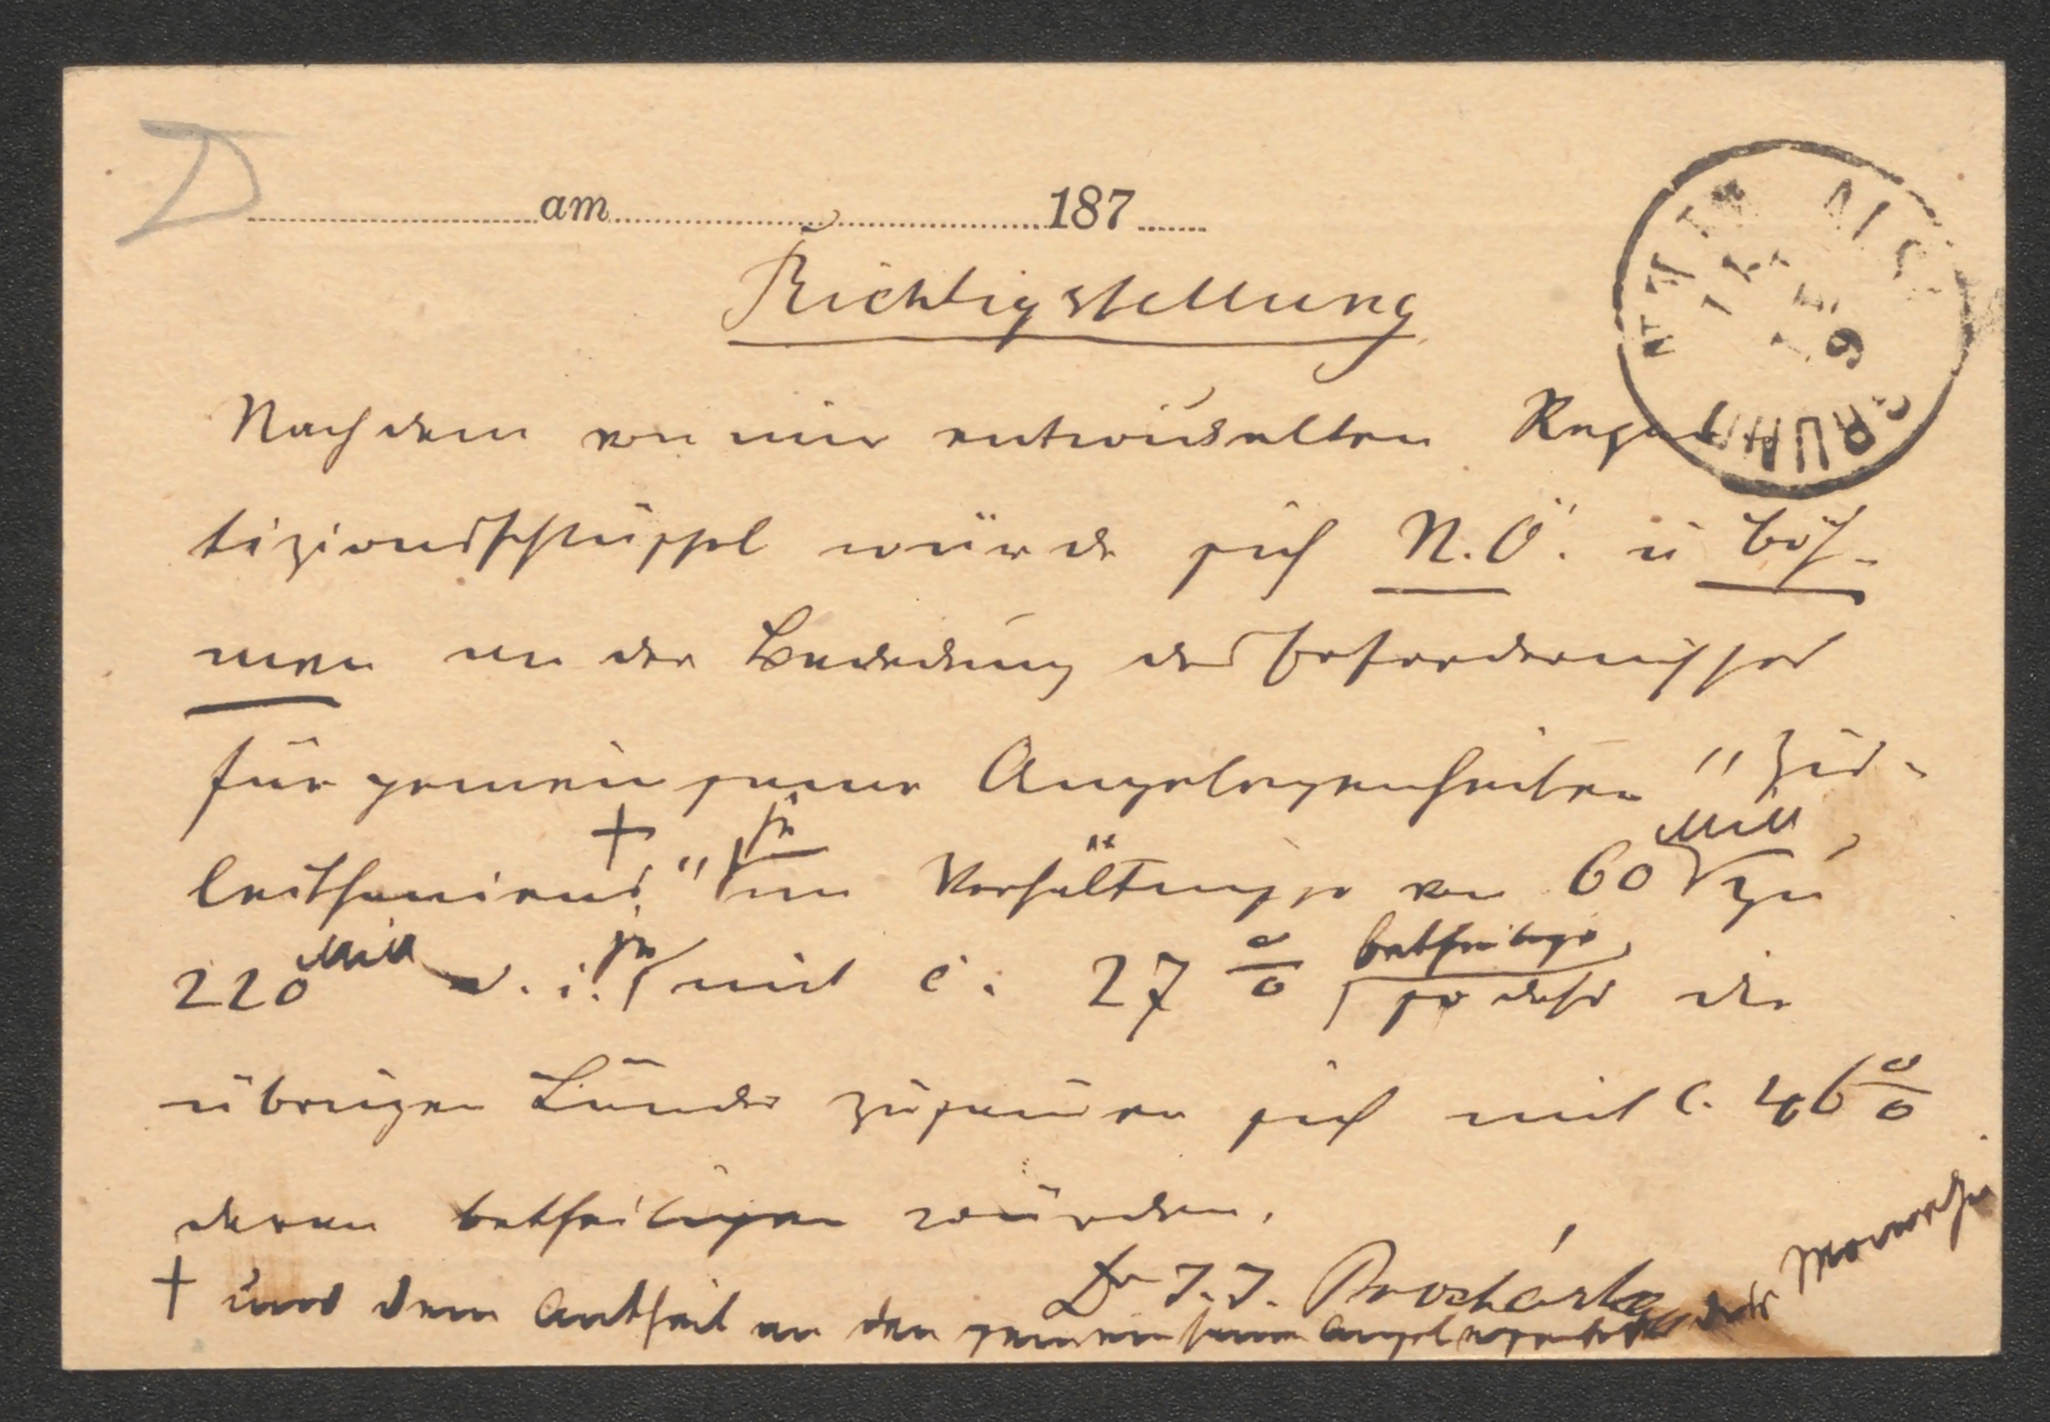 D
am 187
Richtigstellung
Nach dem von mir entwickelten Repar-
tizionsschlüssel würde sich N. Ö. u Böh-
men an der Bedeckung des Erfordernisses
für gemeinsame Angelegenheiten " Zis-
leithaniens + " je im Verhältnisse von 60 Mill zu
220 Mill d. i. je mit c: 27 % betheiligen, so dass die
übrigen Länder zusammen sich mit c. 46 %
daran betheiligen würden.
Dr J. J. Procházka
+ und dem Antheil an den gemeinsamen Angelegenheiten der Monarchie